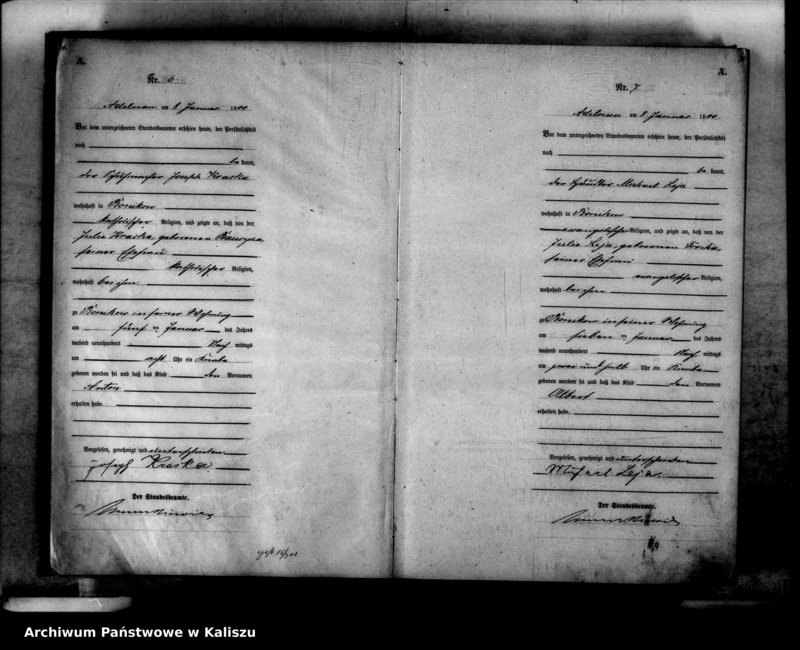 A.
Nr. 6
Adelnau am 8. Januar 1900
Vor dem unterzeichneten Standesbeamten erschien heute, der Persönlichkeit
nach
be kannt,
der Schuhmacher Joseph Kraska
wohnhaft in Bonikow
katholischer Religion, und zeigte an, daß von der
Julie Kraska, geborenen
seiner Ehefrau
katholischer Religion,
wohnhaft bei ihm
zu Bonikow in seiner Wohnung
am fünf ten Januar des Jahres
tausend neunhundert Nach mittags
um acht Uhr ein Knabe
geboren worden sei und daß das Kind den Vornamen
Anton
erhalten habe.
Vorgelesen, genehmigt und unterschrieben
Joseph Kraska
Der Standesbeamte.
A.
Nr. 7
Adelnau am 8. Januar 1900
Vor dem unterzeichneten Standesbeamten erschien heute, der Persönlichkeit
nach
be kannt,
der Häusler Michael Leja
wohnhaft in Bonikow
evangelischer Religion, und zeigte an, daß von der
Julie Leja, geborenen
seiner Ehefrau
evangelischer Religion,
wohnhaft bei ihm
zu Bonikow in seiner Wohnung
am sieben ten Januar des Jahres
tausend neunhundert Nach mittags
um zwei und halb Uhr ein Knabe
geboren worden sei und daß das Kind den Vornamen
Albert
erhalten habe.
Vorgelesen, genehmigt und unterschrieben
Michael Leja
Der Standesbeamte.
Archiwum Państwowe w Kaliszu